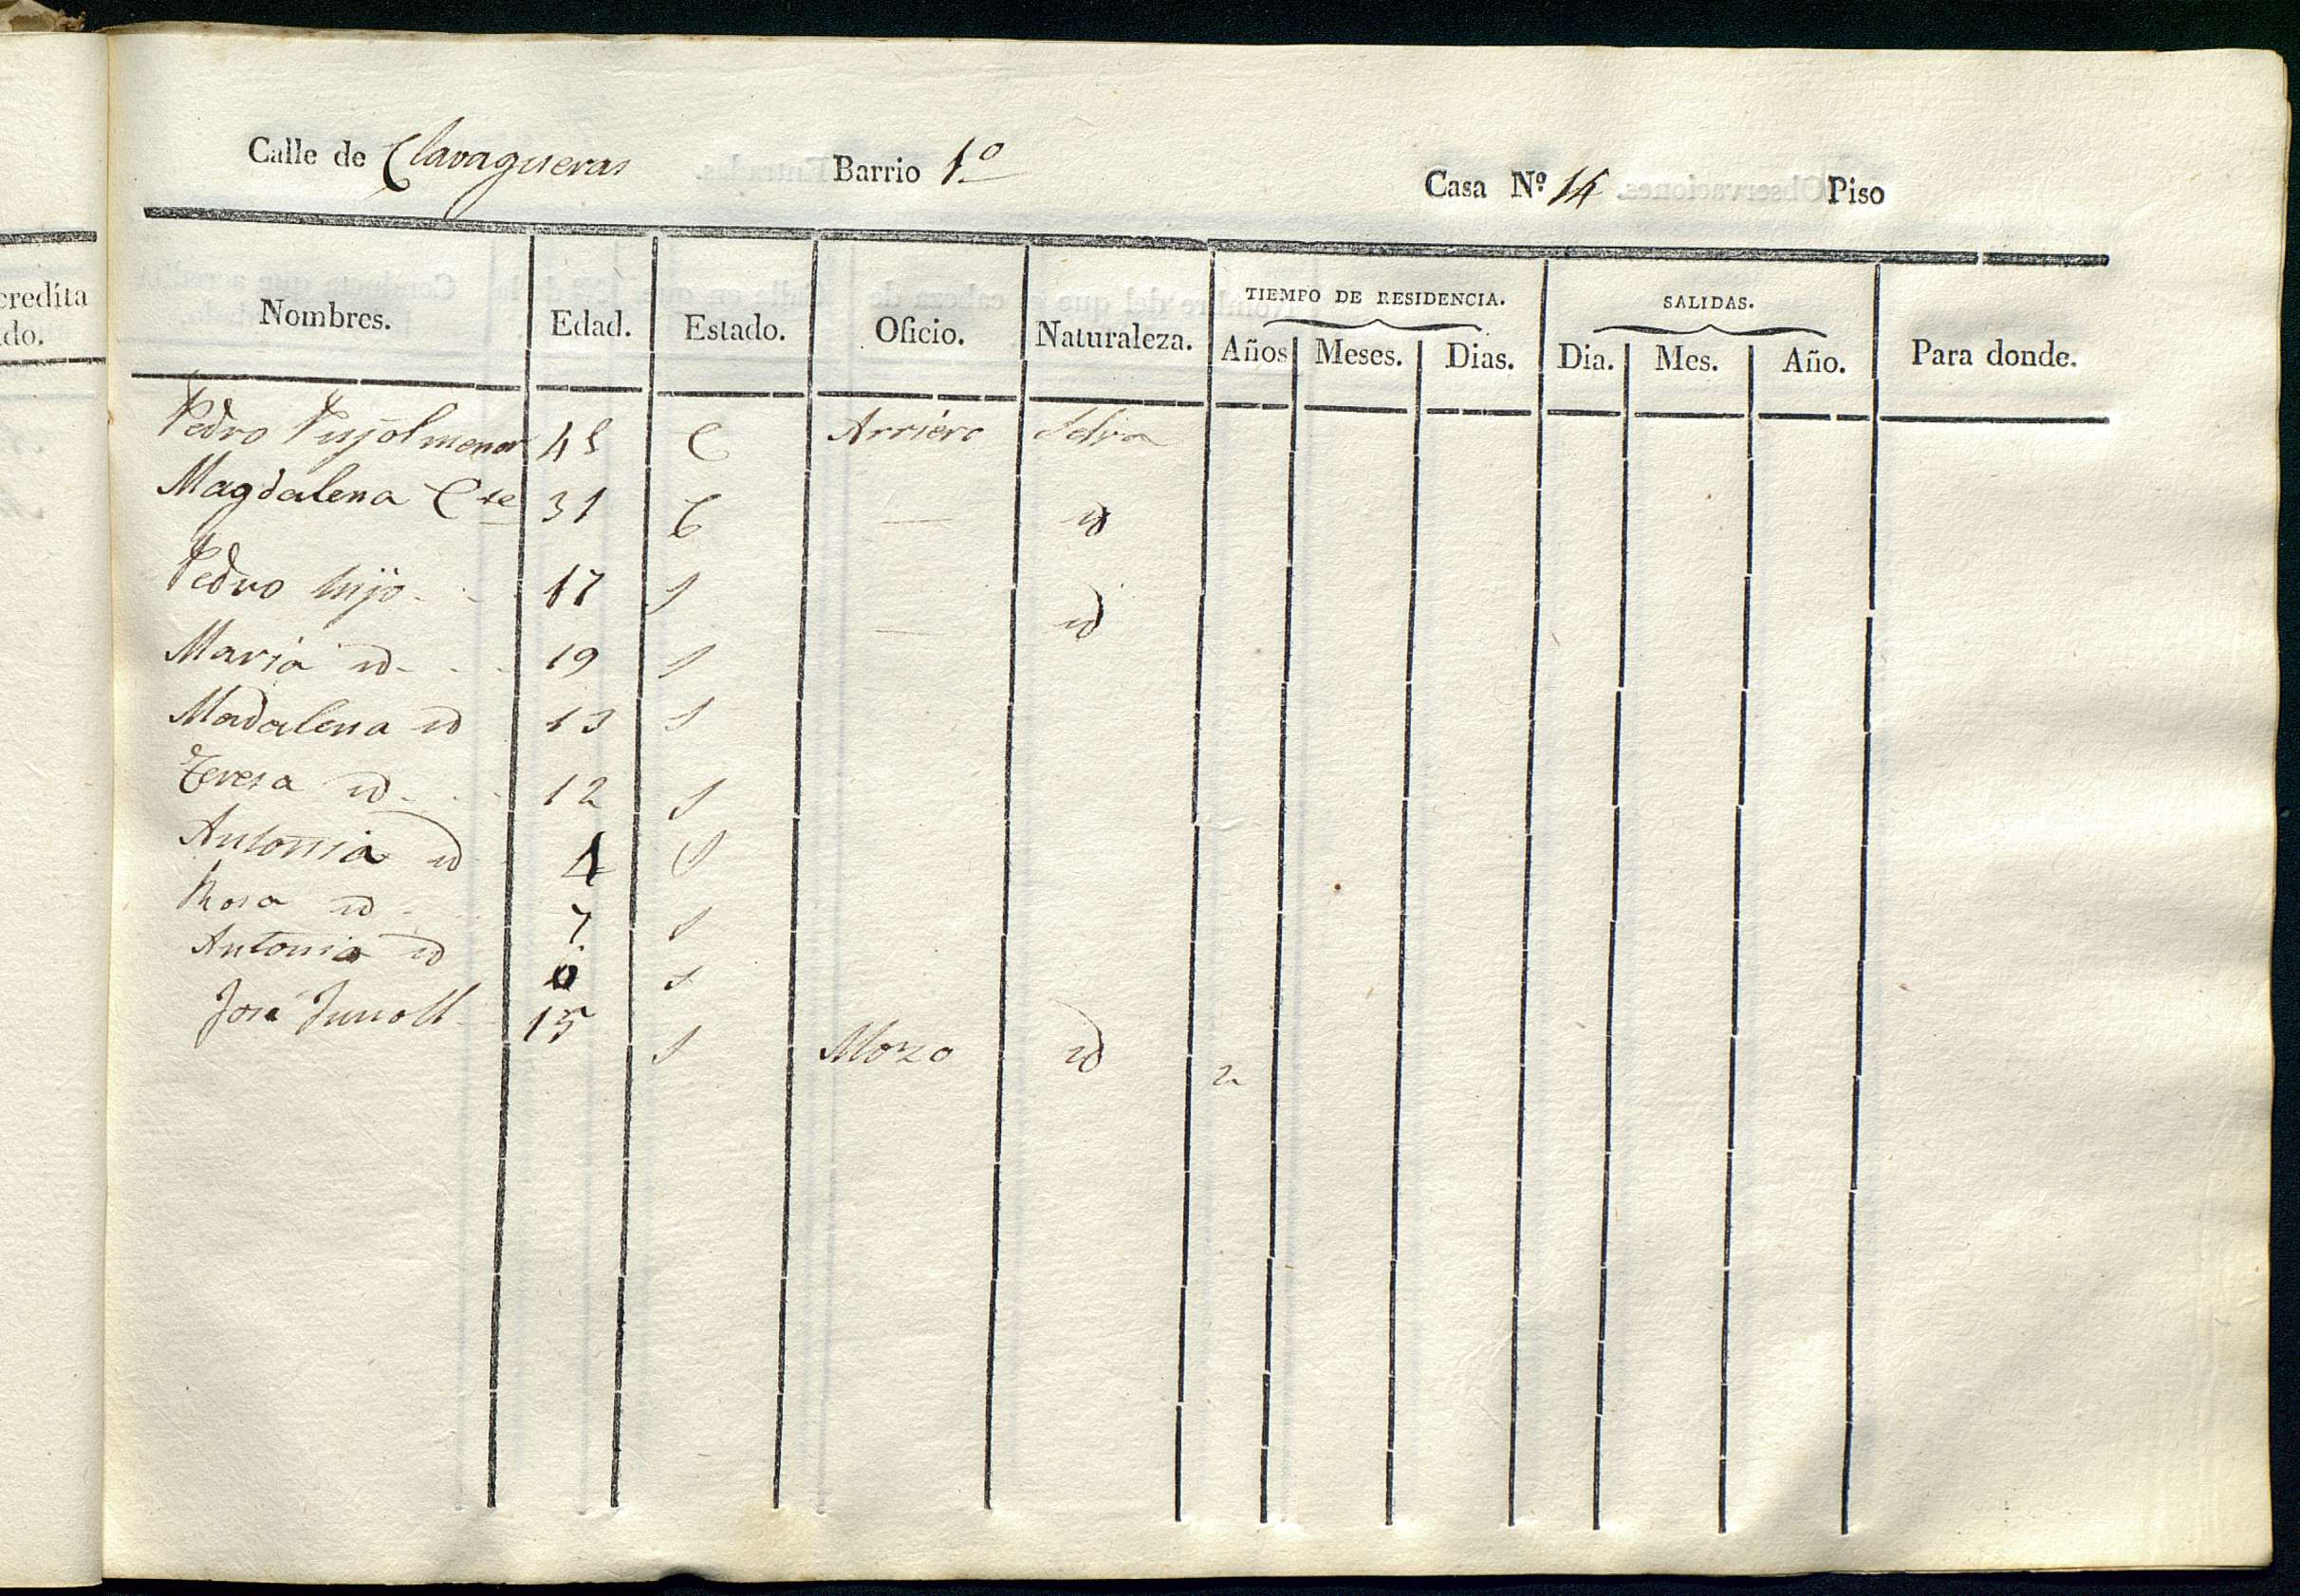 credita
do.
Calle de Clavagueras Barrio 1º Casa Nº 14 Piso
TIEMPO DE RESIDENCIA. SALIDAS.
Nombres. Edad. Estado. Oficio. Naturaleza. Años Meses. Dias. Dia. Mes. Año. Para donde.
Pedro Pujol menor 45 C Arriero Selva
Magdalena Cte 31 C — id
Pedro hijo 17 S — id
Maria id 19 S
Madalena id 13 S
Teresa id 12 S
Antonia id 4 S
Rosa id 7 S
Antonia id S
José 15 S Mozo id 2